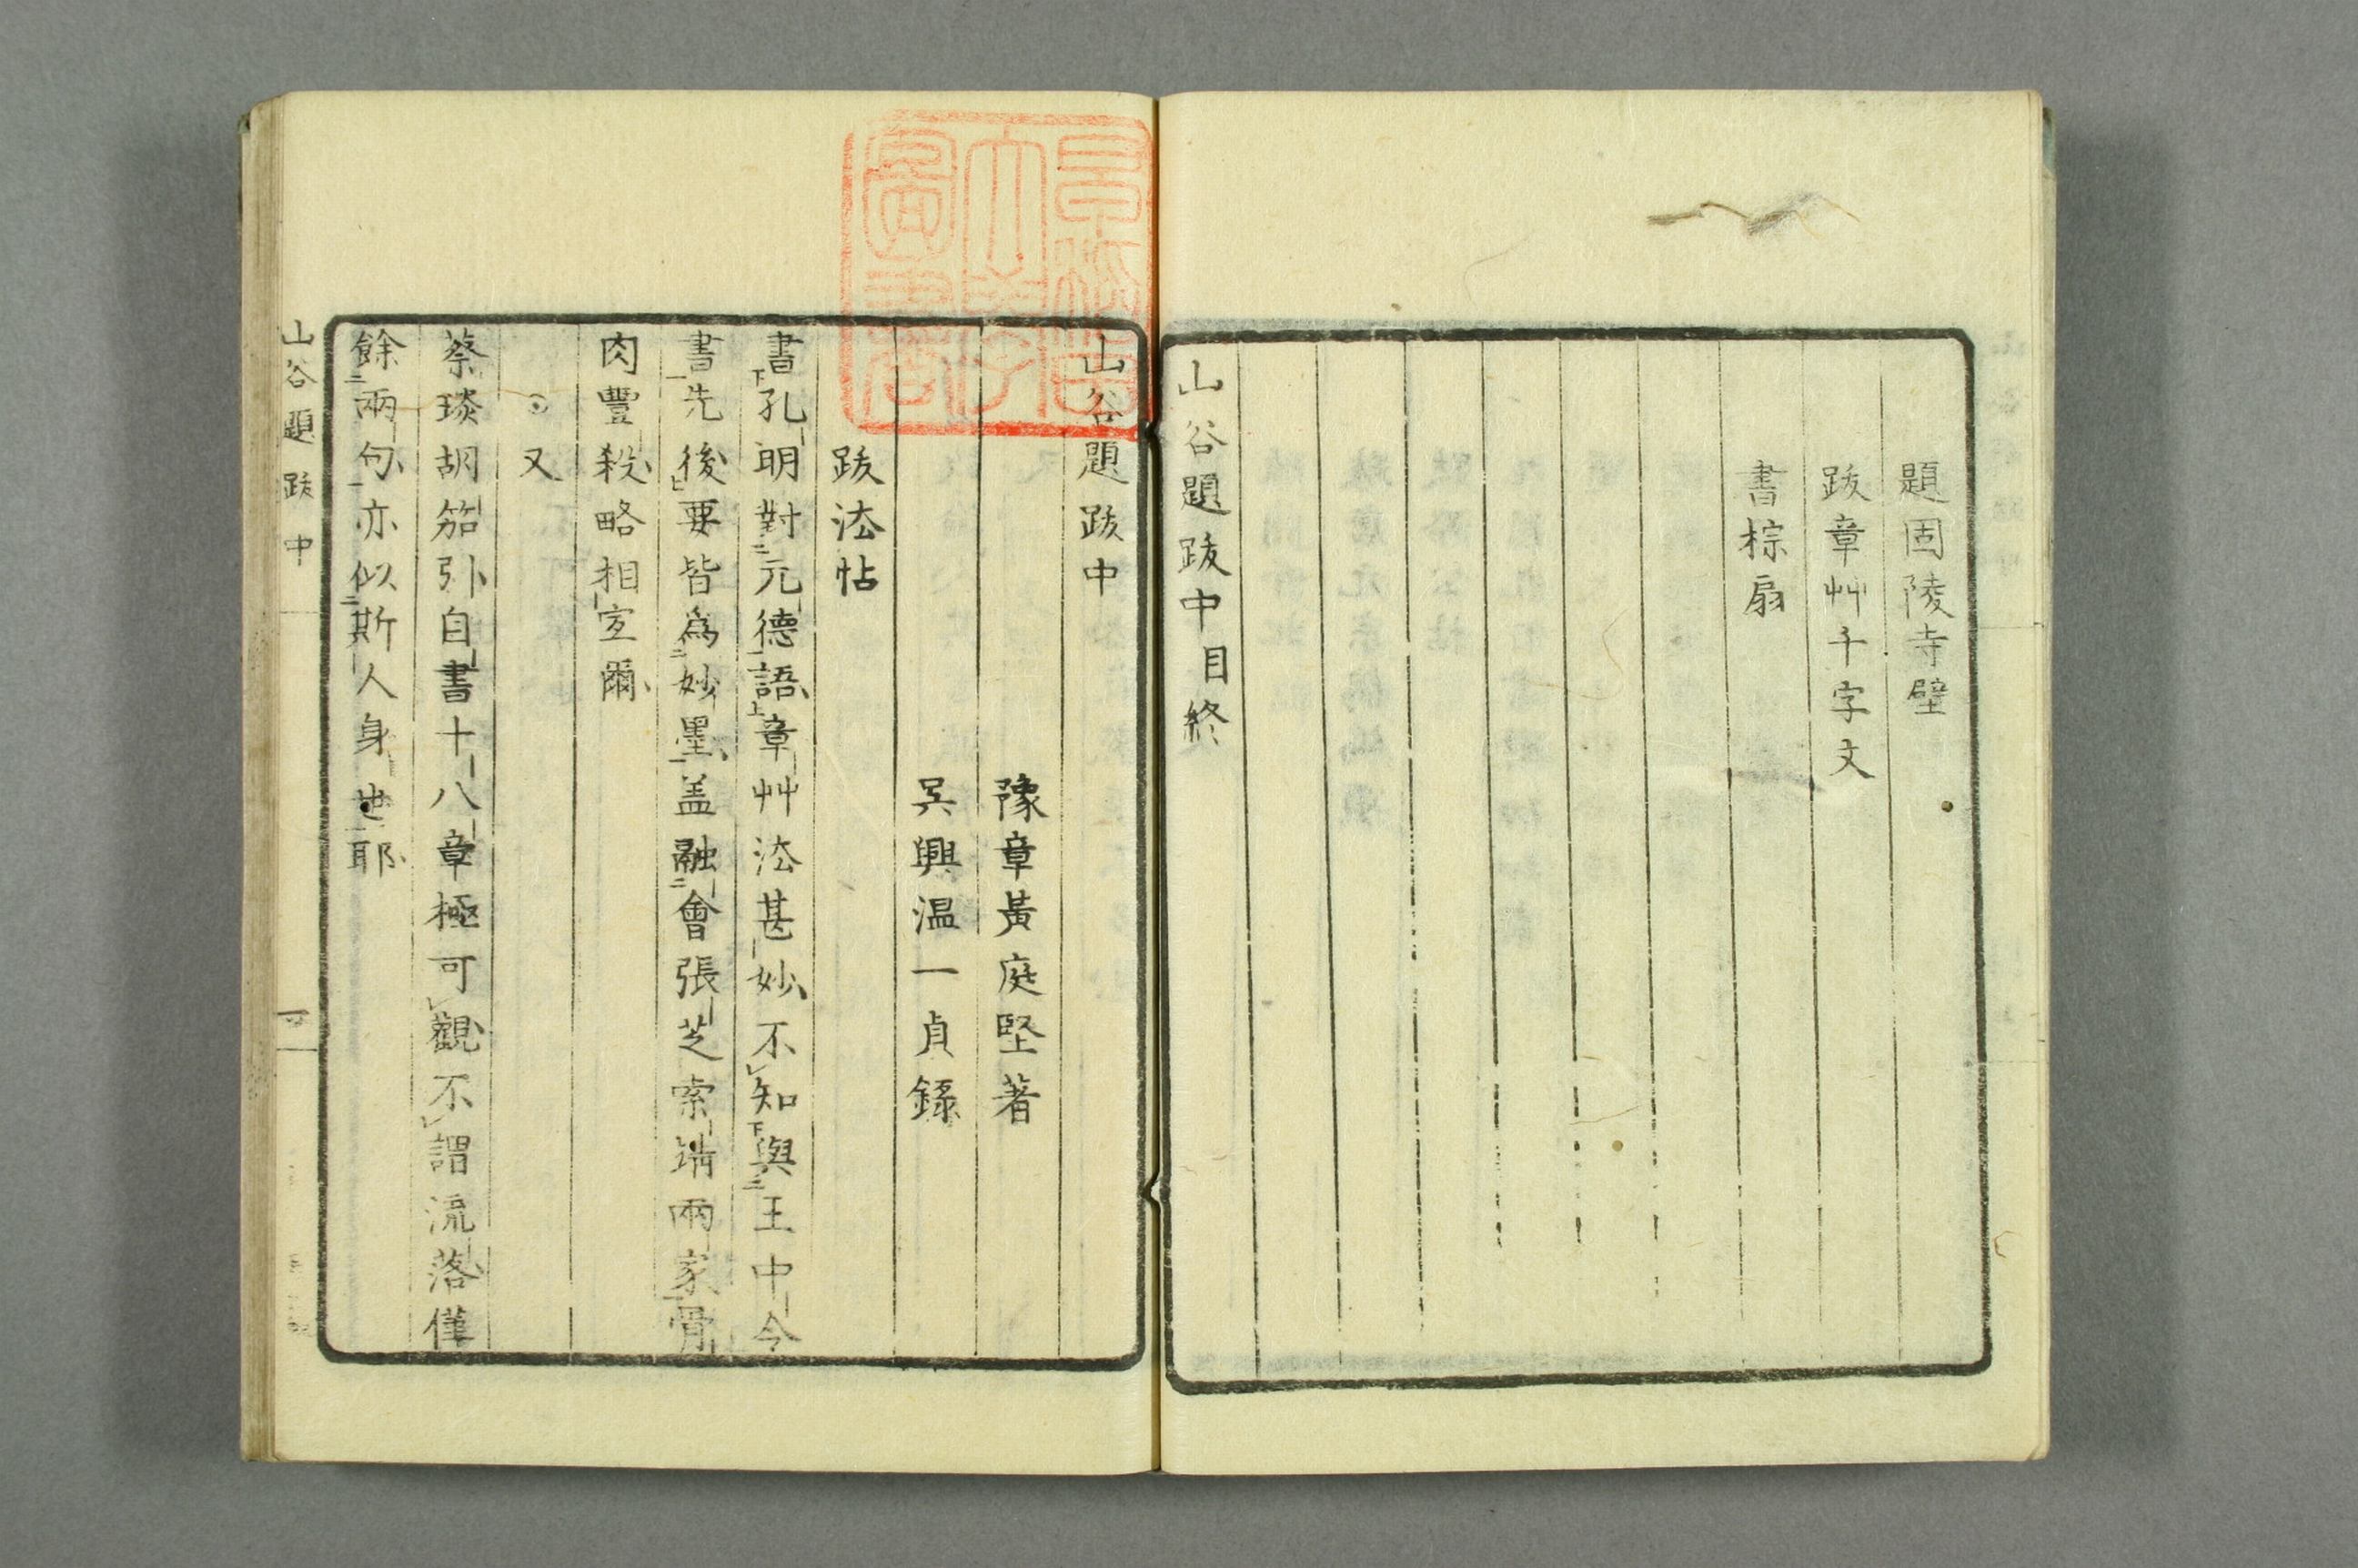 題固陵寺壁
跋章艸千字文
書椶扇
山谷題跋中目終
山谷題跋中
豫章黃庭堅著
吳興温一貞錄
跋法帖
書孔明對元德語章艸法甚妙不知與王中令
書先後要皆爲妙墨盖融會張芝索靖兩家骨
肉豐殺略相宜爾
又
蔡琰胡笳引自書十八章極可觀不謂流落僅
餘兩句亦似斯人身世耶
山谷題跋中